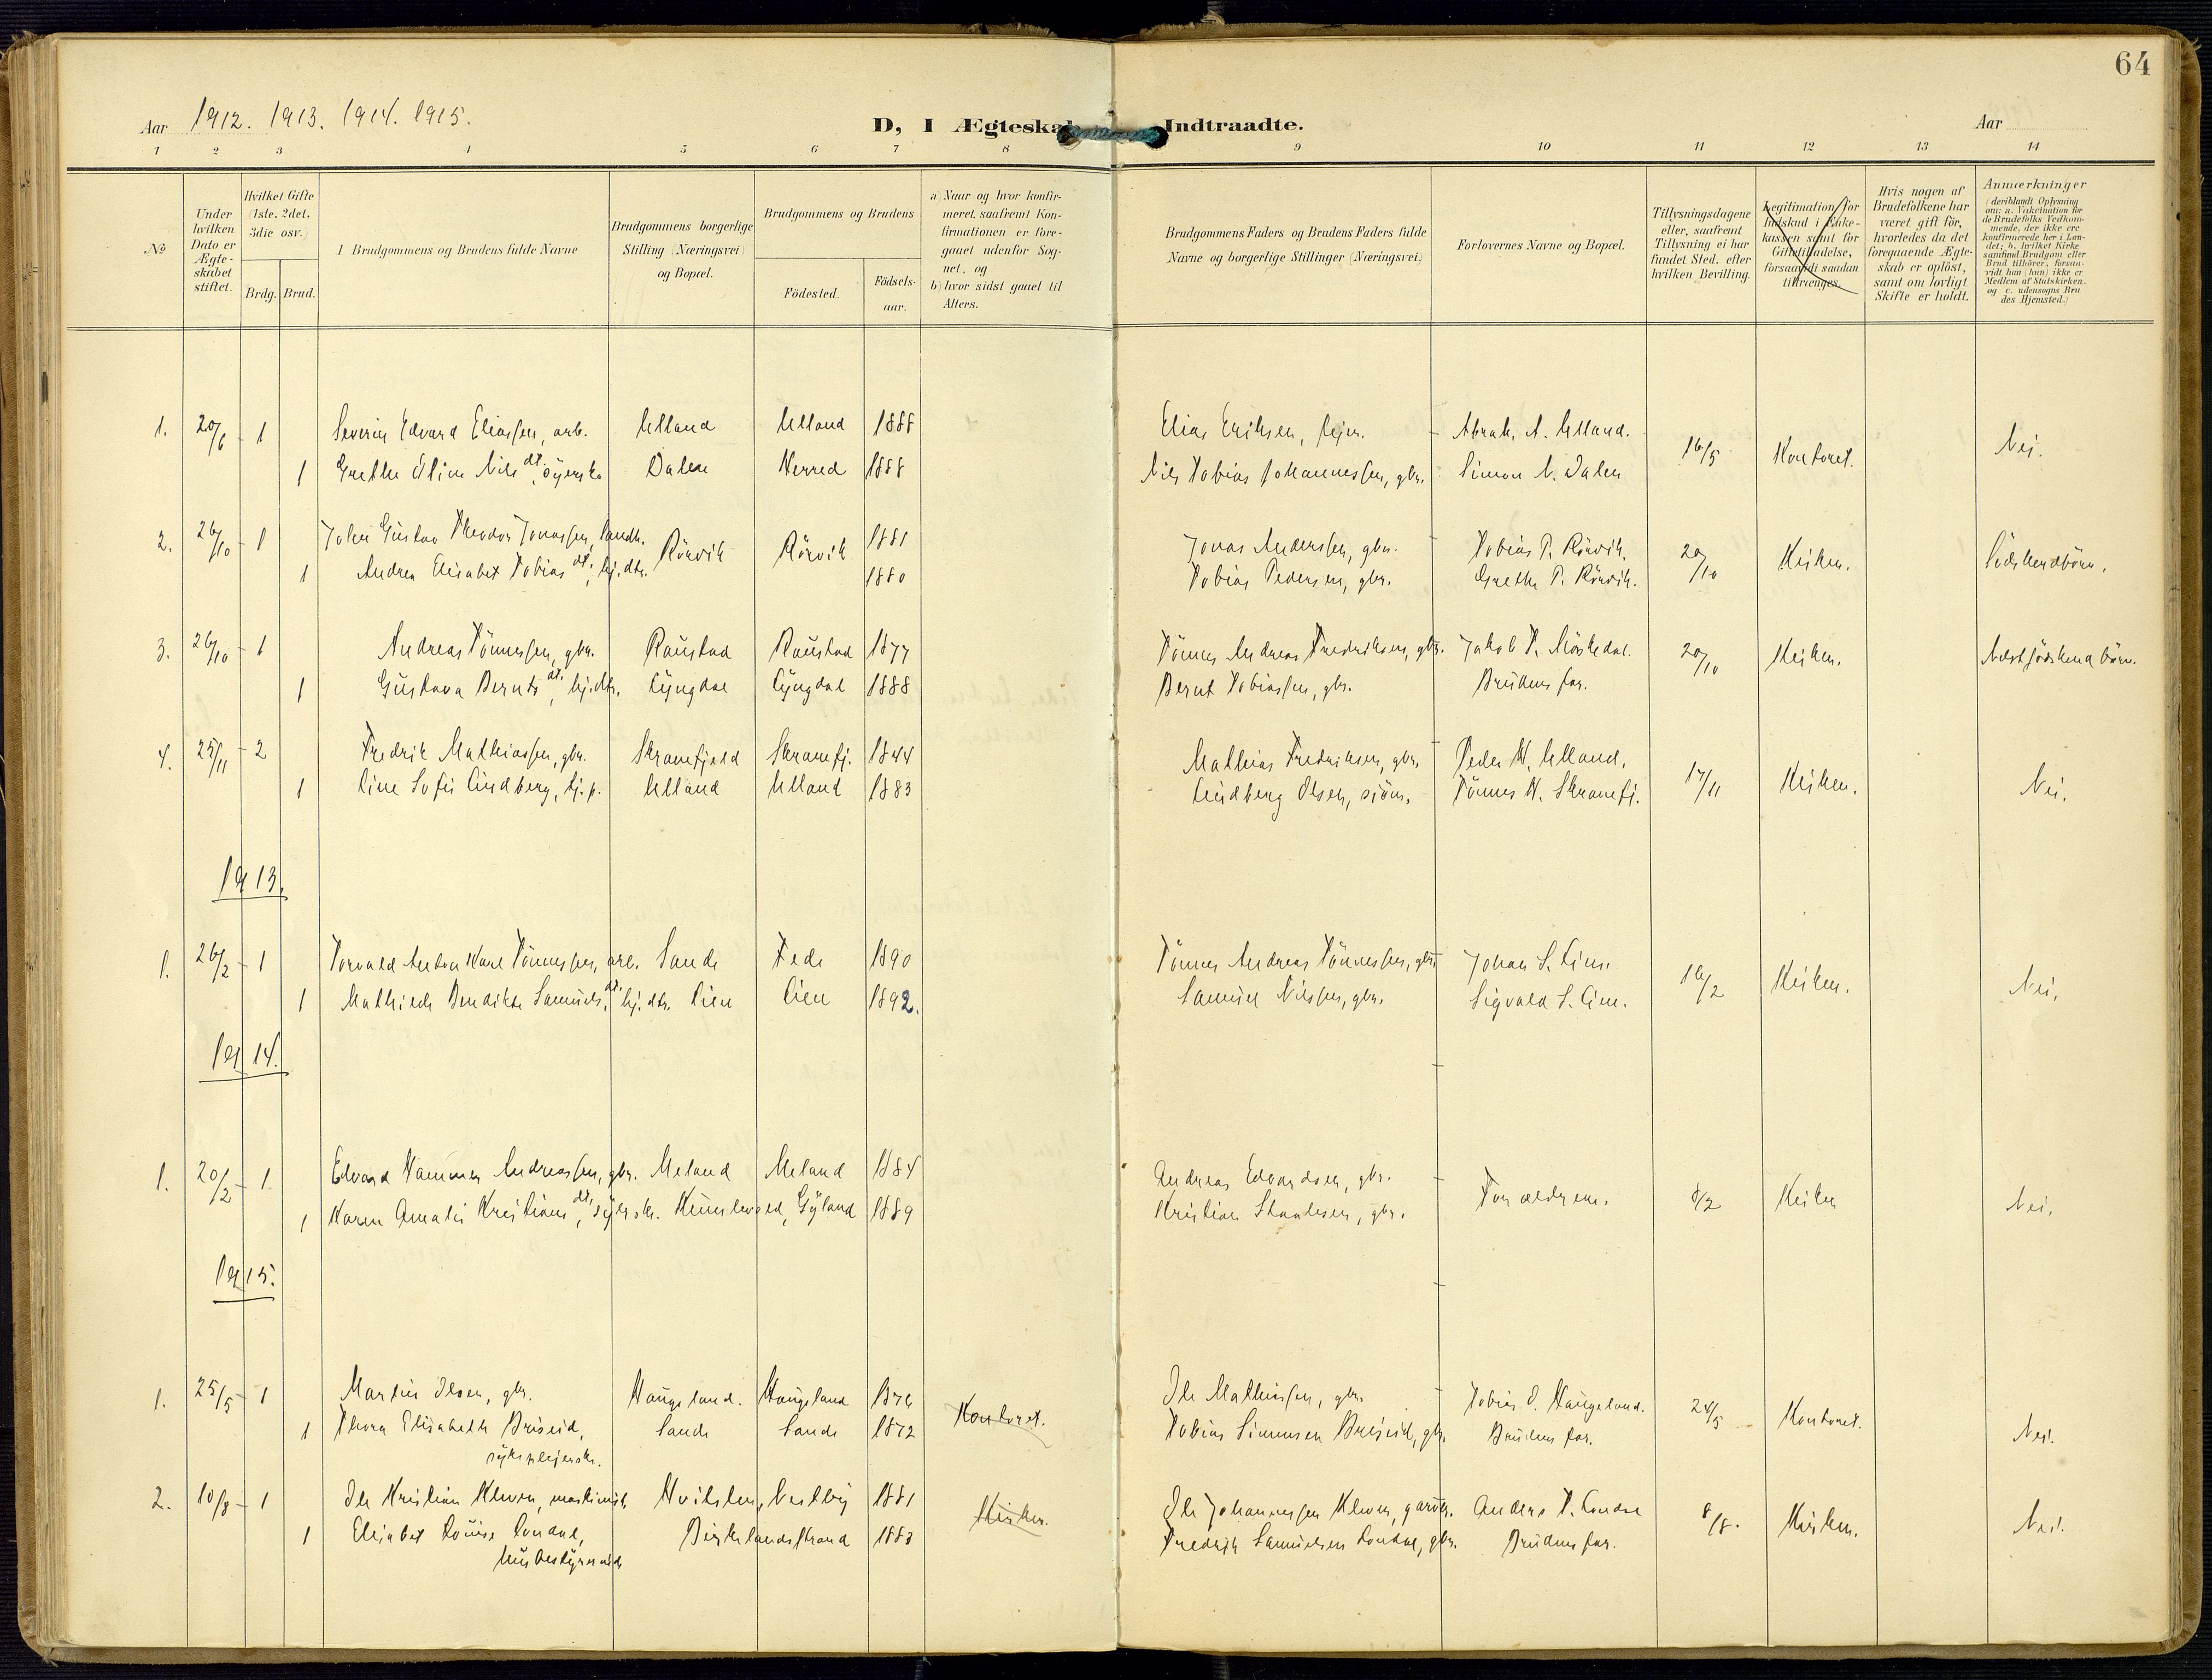 64
Aar 1912. 1913. 1914. 1915. D, I Ægteskab Indtraadte. Aar
1 2 3 4 5 6 7 8 9 10 11 12 13 14
№
Under hvilken Dato er Ægteskabet stiftet.
Hvilket Gifte (1ste, 2det, 3die osv.)
Brdg. Brud.
1 Brudgommens og Brudens fulde Navne
Brudgommens borgerlige Stilling (Næringsvei) og Bopæl.
Brudgommens og Brudens
Födested. Födselsaar.
a) Naar og hvor konfirmeret, saafremt Konfirmationen er foregaaet udenfor Sognet, og
b) hvor sidst gaaet til Alters.
Brudgommens Faders og Brudens Faders fulde Navne og borgerlige Stillinger (Næringsvei)
Forlovernes Navne og Bopæl.
Tillysningsdagene eller, saafremt Tillysning ei har fundet Sted, efter hvilken Bevilling.
Legitimation for Indskud i Enkekassen samt for Giftetilladelse, forsaavidt saadan tiltrænges.
Hvis nogen af Brudefolkene har været gift för, hvorledes da det foregaaende Ægteskab er oplöst, samt om lovligt Skifte er holdt.
Anmærkninger (deriblandt Oplysning om: a. Vakcination for de Brudefolks Vedkommende, der ikke ere konfirmerede her i Landet; b. hvilket Kirkesamfund Brudgom eller Brud tilhörer, forsaavidt han (hun) ikke er Medlem af Statskirken, og c. udensogns Brudes Hjemsted.)
1. 20/6 - 1 Severin Edvard Eliassen, arb. Ulland Ulland 1888 Elias Eriksen, fejer. Abrah. A. Ulland. 16/5 Kontoret. Nei.
1 Grethe Eline Nilsdt., syerske Dalen Herred 1888 Nils Tobias Johannessen, gbr. Simon N. Dalen
2. 26/10 - 1 John Gustav Theodor Jonassen, landh. Rörvik Rörvik 1881 Jonas Anderssen, gbr. Tobias P. Rörvik. 20/10 Kirken. Södskendbörn.
1 Andrea Elisabet Tobiasdt., hj. dtr. 1880 Tobias Pedersen, gbr. Grethe P. Rörvik.
3. 26/10 - 1 Andreas Tönnessen, gbr. Raustad Raustad 1877 Tönnes Andreas Fredriksen, gbr. Jakob T. Möskedal. 20/10 Kirken. Næstsöskend börn.
1 Gustava Berntsdt., hj. dtr. Lyngdal Lyngdal 1888 Bernt Tobiassen, gbr. Brudens far.
4. 25/11 - 2 Fredrik Mathiassen, gbr. Skranefjeld Skranefj. 1844 Mathias Fredriksen, gbr. Peder H. Ulland. 17/11 Kirken. Nei.
1 Line Sofie Lindberg, tj. p. Ulland Ulland 1883 Lindberg Olsen, sjöm. Tönnes H. Skranefj.
1913.
1. 26/2 - 1 Torvald Anton Karl Tönnessen, arb. Sande Fede 1890 Tönnes Andreas Tönnessen, gbr. Johan S. Lien 16/2 Kirken. Nei.
1 Mathilde Bendikte Samuelsdt., hj. dtr. Lien Lien 1892. Samuel Nilssen, gbr. Sigvald S. Lien.
1914.
1. 20/2 - 1 Edvard Hammen Andreassen, gbr. Meland Meland 1884 Andreas Edvardsen, gbr. Forældrene. 8/2 Kirken Nei.
1 Karen Amalie Kristiansdt., syerske. Kumlevold, Gyland 1889 Kristian Staalesen, gbr.
1915.
1. 25/5 - 1 Martin Olsen, gbr. Haugeland. Haugeland 1876 Kontoret. Ole Mathiassen, gbr. Tobias O. Haugeland. 24/5 Kontoret. Nei.
1 Thora Elisabeth Briseid, Sande Sande 1872 Tobias Simonsen Briseid, gbr. Brudens far.
sykeplejerske.
2. 10/8 - 1 Ole Kristian Kleven, maskinist Hvitsten, Vestby 1881 Kirken. Ole Johannessen Kleven, gaardbr. Anders T. Londal 8/8. Kirken. Nei.
1 Elisabet Louise Londal, Birkelandsstrand 1883 Fredrik Samuelsen Londal, gbr. Brudens far.
husbestyrerinde